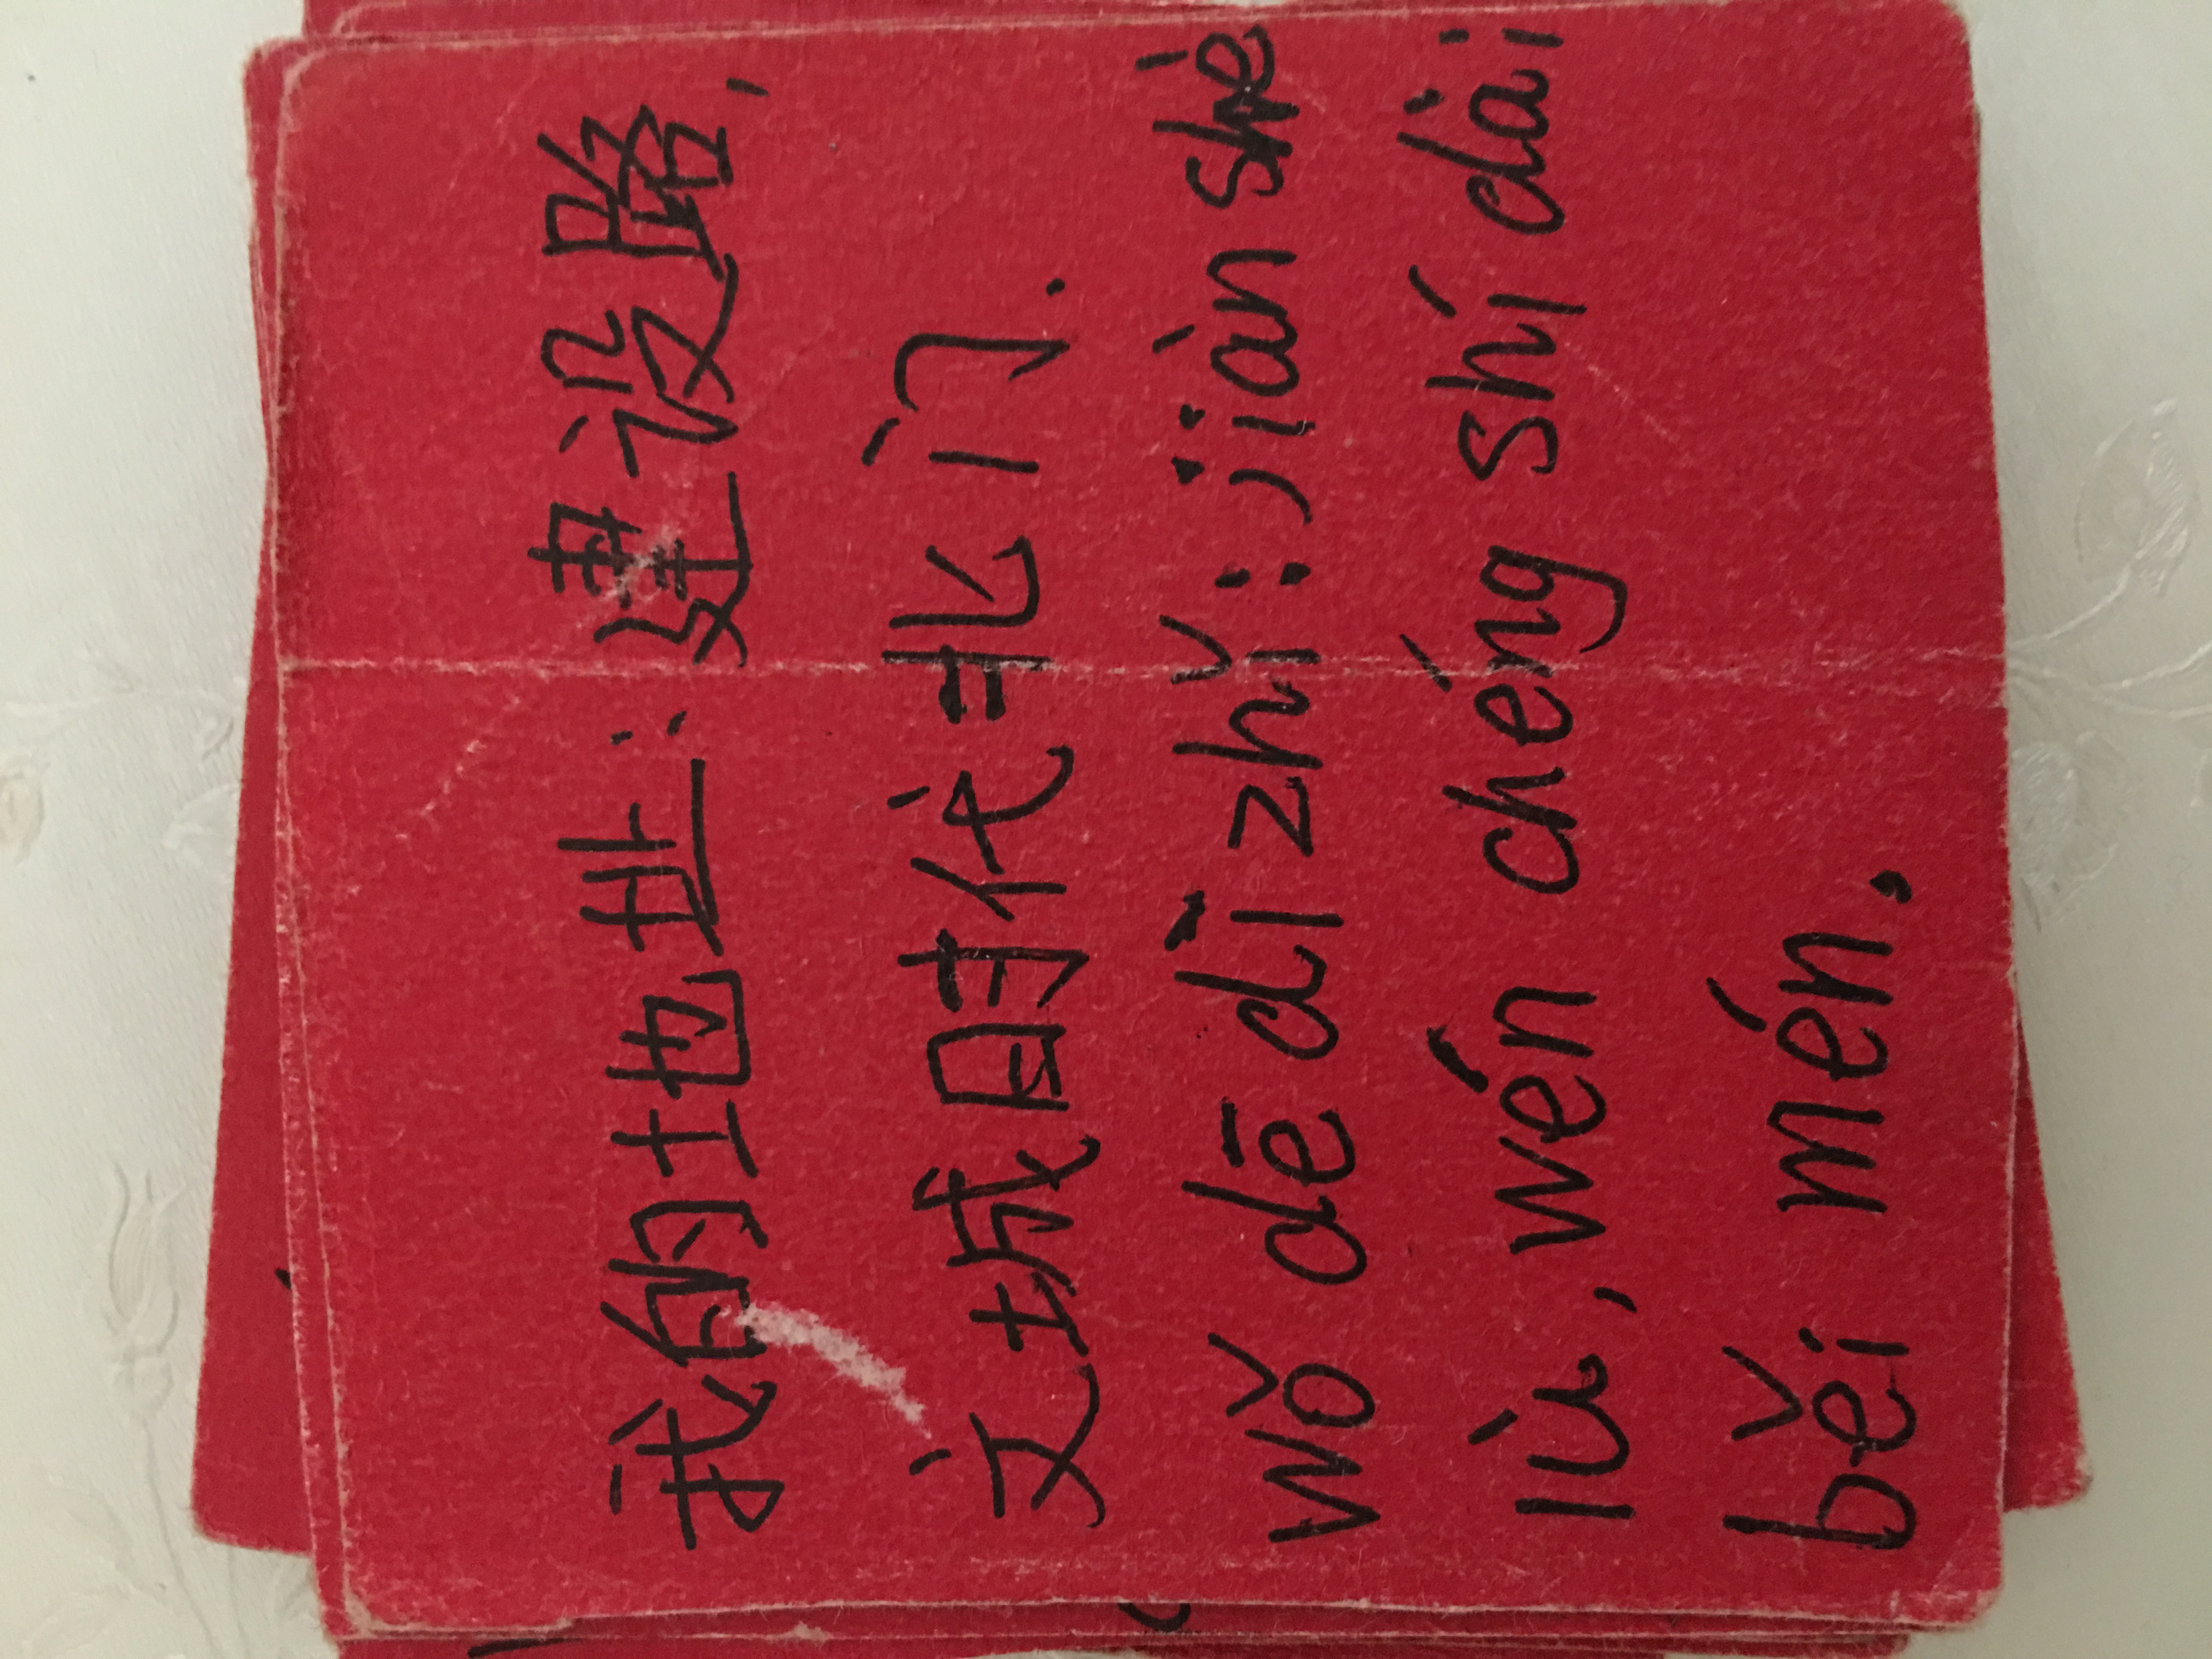 我的地址：建设路,
文城时代北门.
wǒ dē dì zhǐ: jiàn shè
lù, wén chéng shí dài
běi mén.